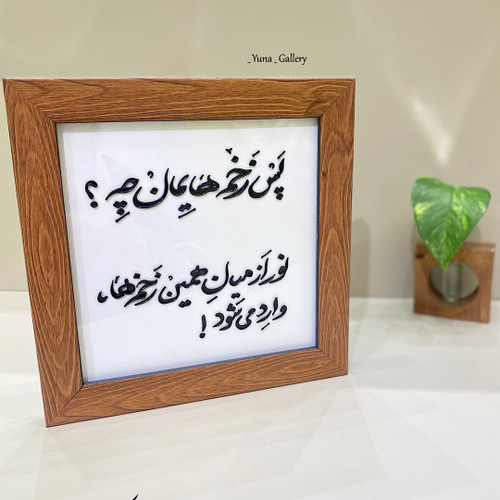 _Yuna_Gallery
پَس زَخم‌هایِمان چِه ؟
نور اَز میانِ همین زَخم‌ها،
وارِد می‌شَود !